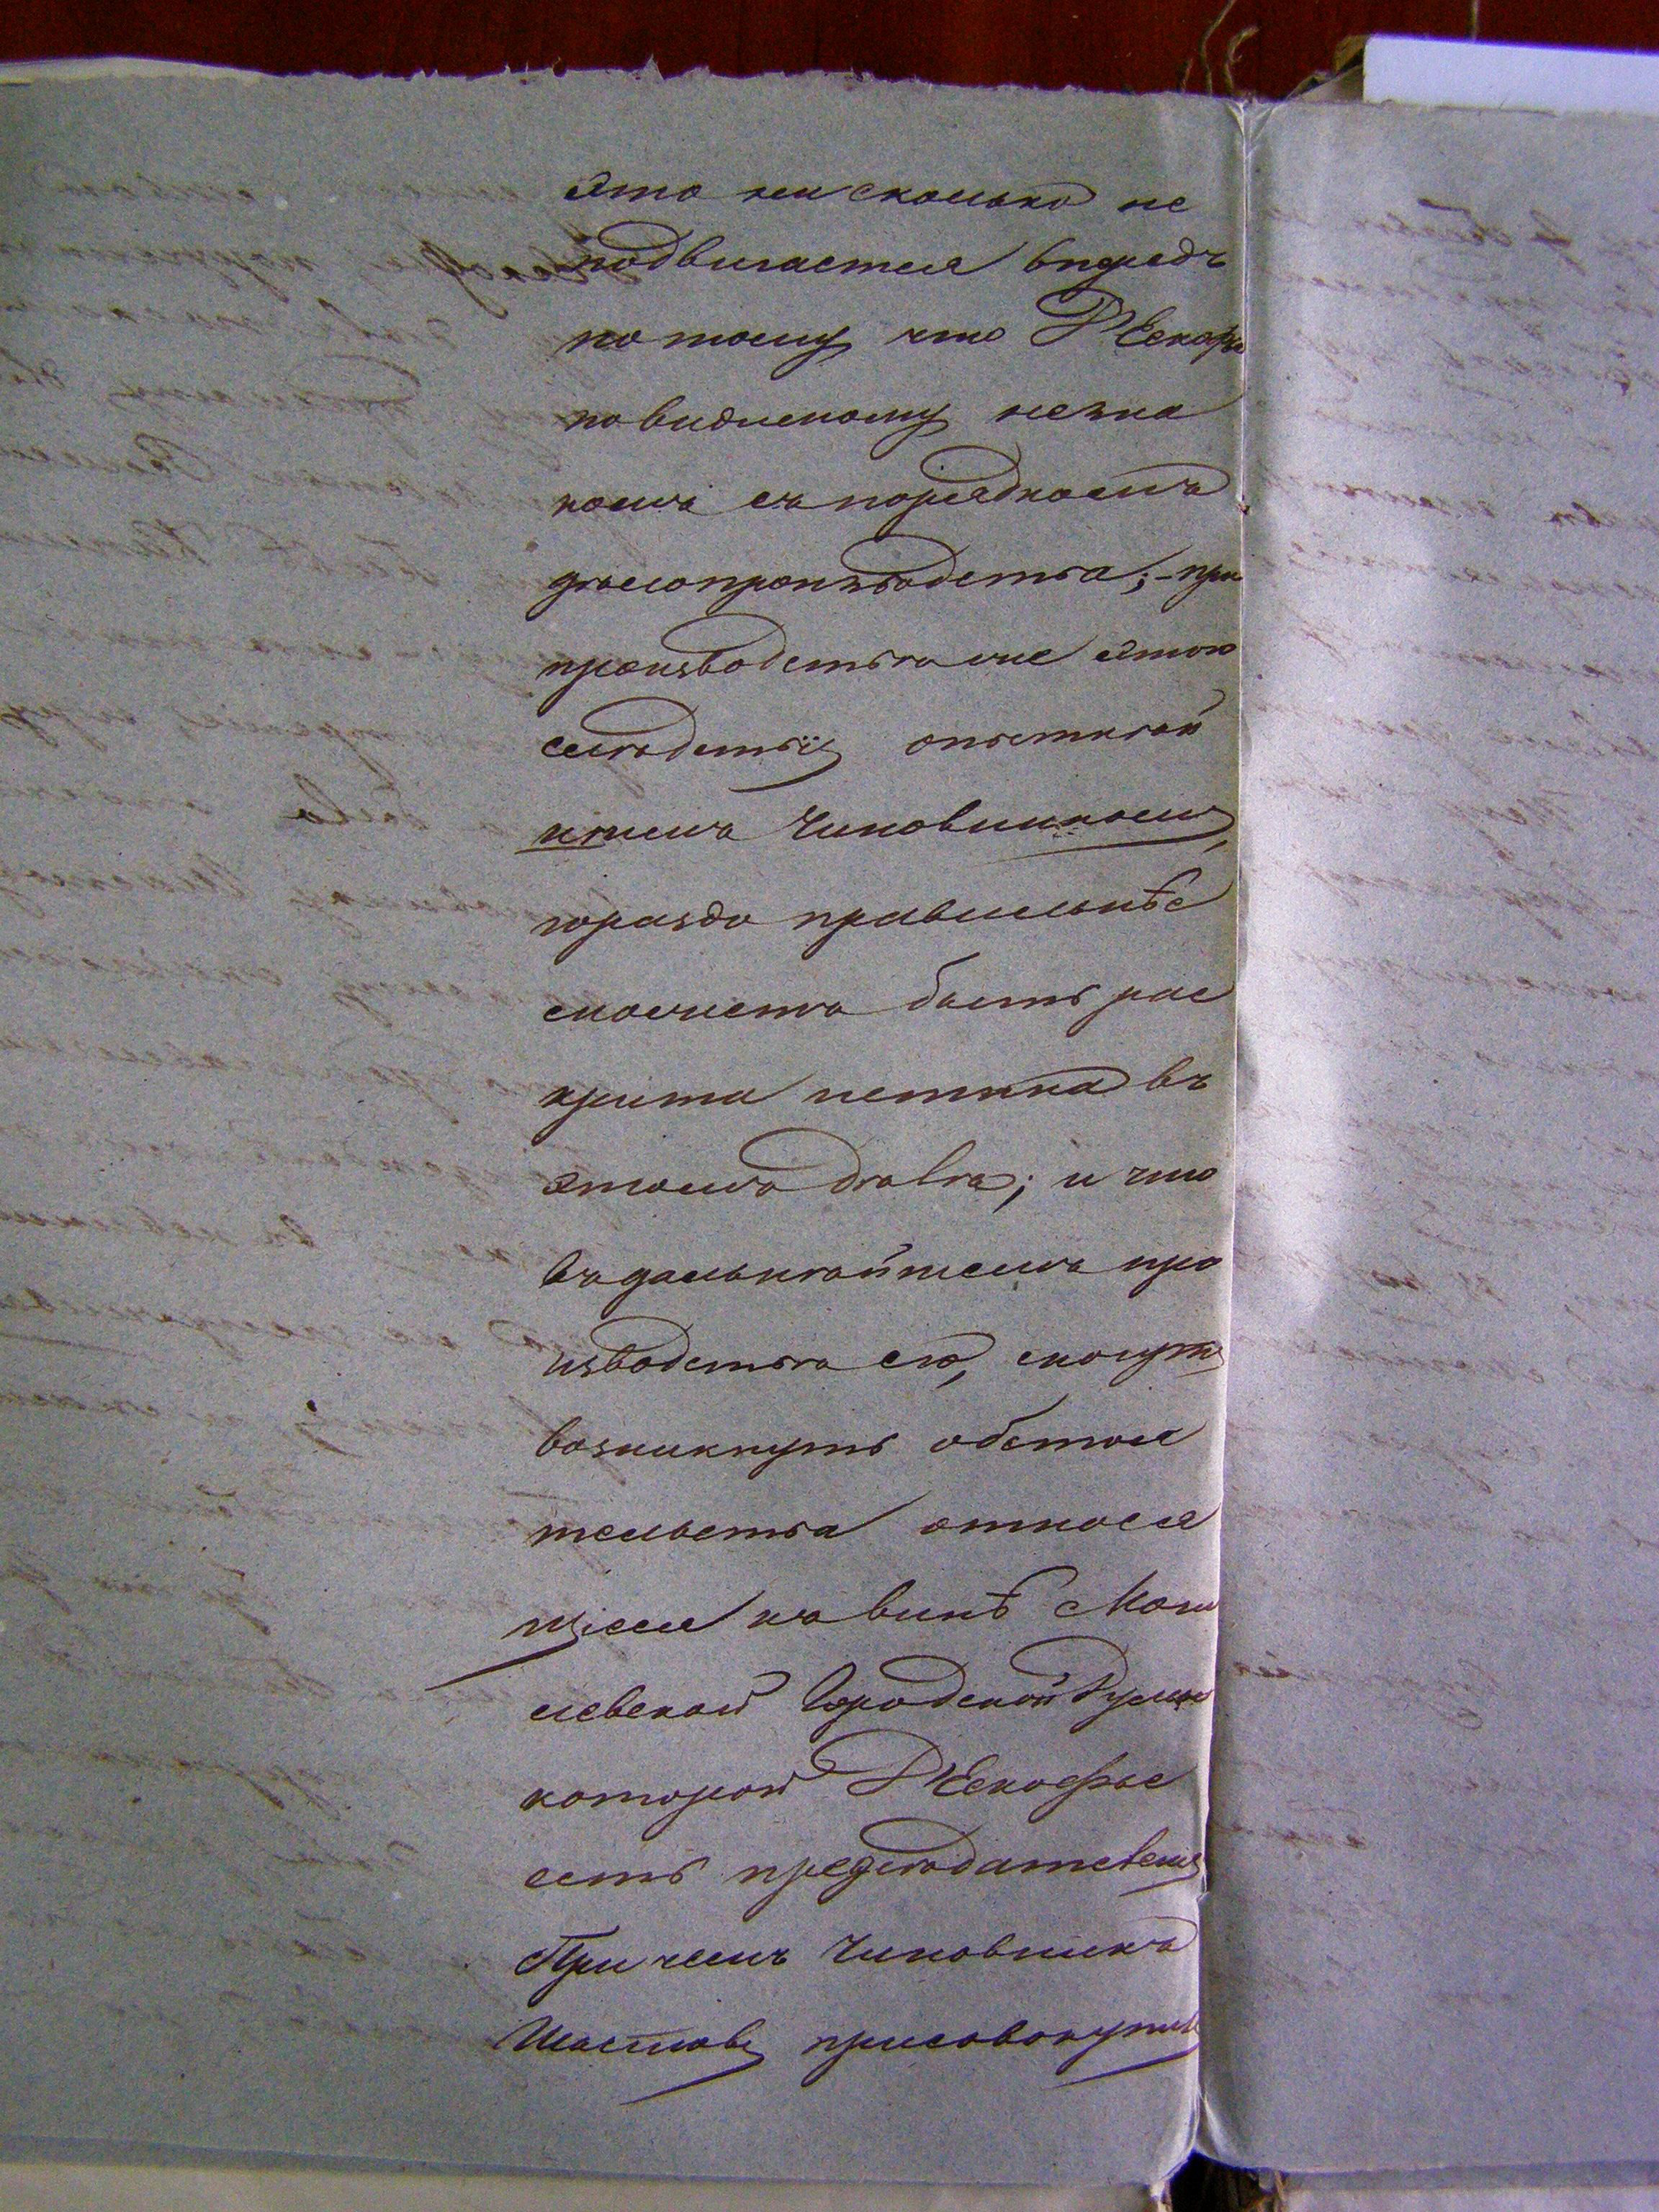 это ни сколько не
подвигается впередъ
по тому что Р. Скафъ
по видимому незна
комъ съ порядкомъ
дѣлопроизводства; – при
производствѣ же этого
слѣдствія опытнѣй
шимъ Чиновникомъ,
гораздо правильнѣе
можетъ быть рас
крыта истина въ
этомъ дѣлѣ; и что
въ дальнѣйшемъ про
изводствѣ его, могутъ
возникнуть обстоя
тельства относя
щіеся къ винѣ Моги
левской Городской Думы
которой
есть предсѣдателемъ
При чемъ Чиновникъ
присовокупилъ